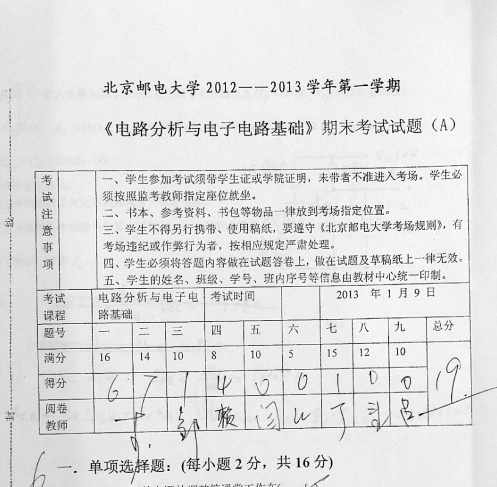 北京邮电大学 2012——2013 学年第一学期
《电路分析与电子电路基础》期末考试试题（A）
考试注意事项
一、学生参加考试须带学生证或学院证明，未带者不准进入考场。学生必
须按照监考教师指定座位就坐。
二、书本、参考资料、书包等物品一律放到考场指定位置。
三、学生不得另行携带、使用稿纸，要遵守《北京邮电大学考场规则》，有
考场违纪或作弊行为者，按相应规定严肃处理。
四、学生必须将答题内容做在试题答卷上，做在试题及草稿纸上一律无效。
五、学生的姓名、班级、学号、班内序号等信息由教材中心统一印制。
考试课程 电路分析与电子电路基础 考试时间 2013 年 1 月 9 日
题号 一 二 三 四 五 六 七 八 九 总分
满分 16 14 10 8 10 5 15 12 10
得分 6 7 1 4 0 0 1 0 0 19.
阅卷教师
6 一．单项选择题：(每小题 2 分，共 16 分)